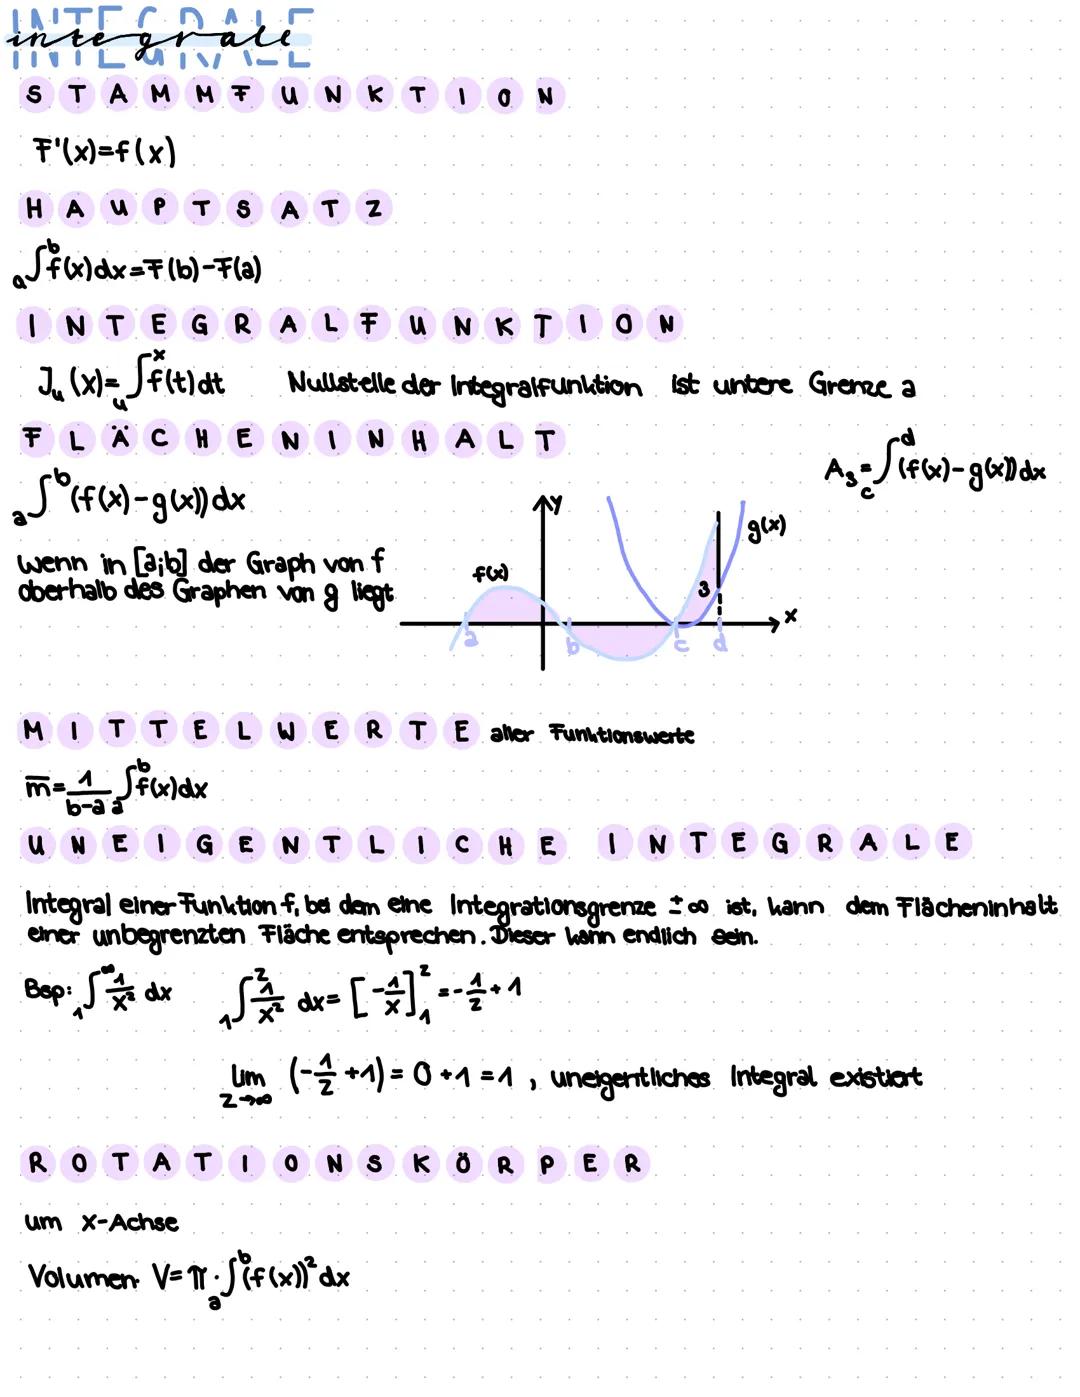 INTEGRALE
integrale
STAMMFUNKTION
F'(x)=f(x)
HAUPTSATZ
a∫b f(x)dx=F(b)-F(a)
INTEGRALFUNKTION
Ju(x)= u∫x f(t)dt Nullstelle der Integralfunktion ist untere Grenze a
FLÄCHENINHALT
A3= c∫d (f(x)-g(x))dx
a∫b (f(x)-g(x))dx
wenn in [a;b] der Graph von f
oberhalb des Graphen von g liegt
y
g(x)
f(x)
3
x
a b c d
MITTELWERTE aller Funktionswerte
m̅= 1/(b-a) a∫b f(x)dx
UNEIGENTLICHE INTEGRALE
Integral einer Funktion f, bei dem eine Integrationsgrenze ±∞ ist, kann dem Flächeninhalt
einer unbegrenzten Fläche entsprechen. Dieser kann endlich sein.
Bsp: 1∫∞ 1/x² dx 1∫z 1/x² dx = [-1/x]1z = -1/z + 1
lim z→∞ (-1/z +1) = 0+1=1, uneigentliches Integral existiert
ROTATIONSKÖRPER
um x-Achse
Volumen: V=π· a∫b (f(x))² dx